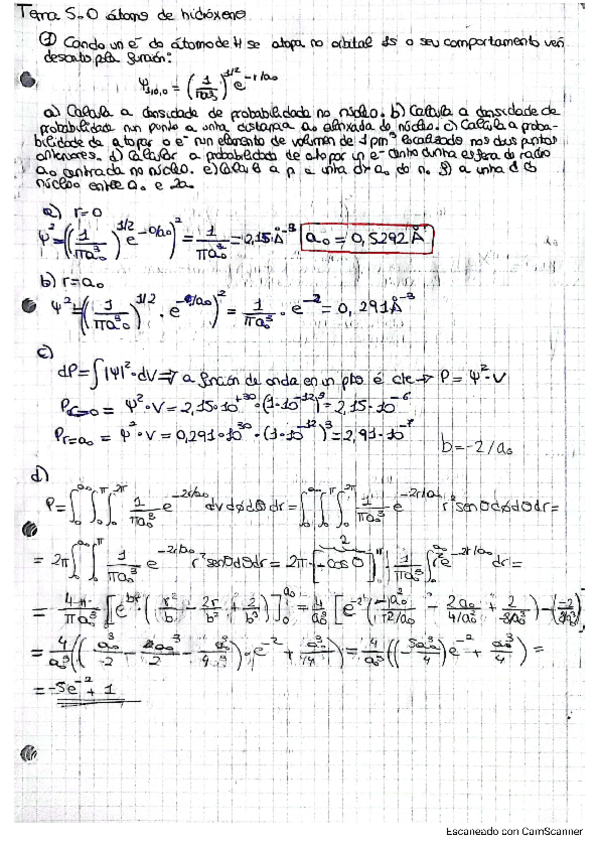 Tema 5-O átomo de hidróxeno
① Cando un e⁻ do átomo de H se atopa no orbital 1s o seu comportamento ven
descrito pla función:
ψ₁,₀,₀ = (1/πa₀³)^1/2 e^-r/a₀
a) Calcula a densidade de probabilidade no núcleo. b) Calcula a densidade de
probabilidade nun punto a unha distancia a₀ do núcleo. c) Calcula a proba-
bilidade de atopar o e⁻ nun elemento de volumen de 1 pm³ localizado nos dous puntos
anteriores. d) Calcular a probabilidade de atopar un e⁻ dentro dunha esfera de radio
a₀ centrada no núcleo. e) Calcula a p a unha d > a₀ do n. f) a unha d
núcleo entre a₀ e 2a₀
a) r=0
ψ² = ((1/πa₀³)^1/2 e^-0/a₀)² = 1/πa₀³ = 2,15 Å⁻³ a₀ = 0,5292 Å
b) r=a₀
ψ² = ((1/πa₀³)^1/2 · e^-a₀/a₀)² = 1/πa₀³ · e⁻² = 0,291 Å⁻³
c)
dP = ∫|ψ|²·dV ⇒ a función de onda en un pto é cte → P = ψ²·V
Pr=0 = ψ²·V = 2,15·10^+30·(1·10⁻¹²)³ = 2,15·10⁻⁶
Pr=a₀ = ψ²·V = 0,291·10³⁰·(1·10⁻¹²)³ = 2,91·10⁻⁷
b = -2/a₀
d)
P = ∫₀^a₀ ∫₀^π ∫₀^2π 1/πa₀³ e^-2r/a₀ dv dϕ dθ dr = ∫₀^a₀ ∫₀^π ∫₀^2π 1/πa₀³ e^-2r/a₀ r² senθ dϕ dθ dr =
= 2π ∫₀^a₀ ∫₀^π 1/πa₀³ e^-2r/a₀ r² senθ dθ dr = 2π · [-cosθ]₀^π 2 · 1/πa₀³ ∫₀^a₀ r² e^-2r/a₀ dr =
= 4π/πa₀³ [e^br · (r²/b - 2r/b² + 2/b³)]₀^a₀ = 4/a₀³ [e⁻² (a₀²/-2/a₀ - 2a₀/4/a₀² + 2/-8/a₀³) - (-2/8/a₀³)]
= 4/a₀³ ((a₀³/-2 - a₀³/2 - a₀³/4) · e⁻² + a₀³/4) = 4/a₀³ ((-5a₀³/4) e⁻² + a₀³/4) =
= -5e⁻² + 1
Escaneado con CamScanner